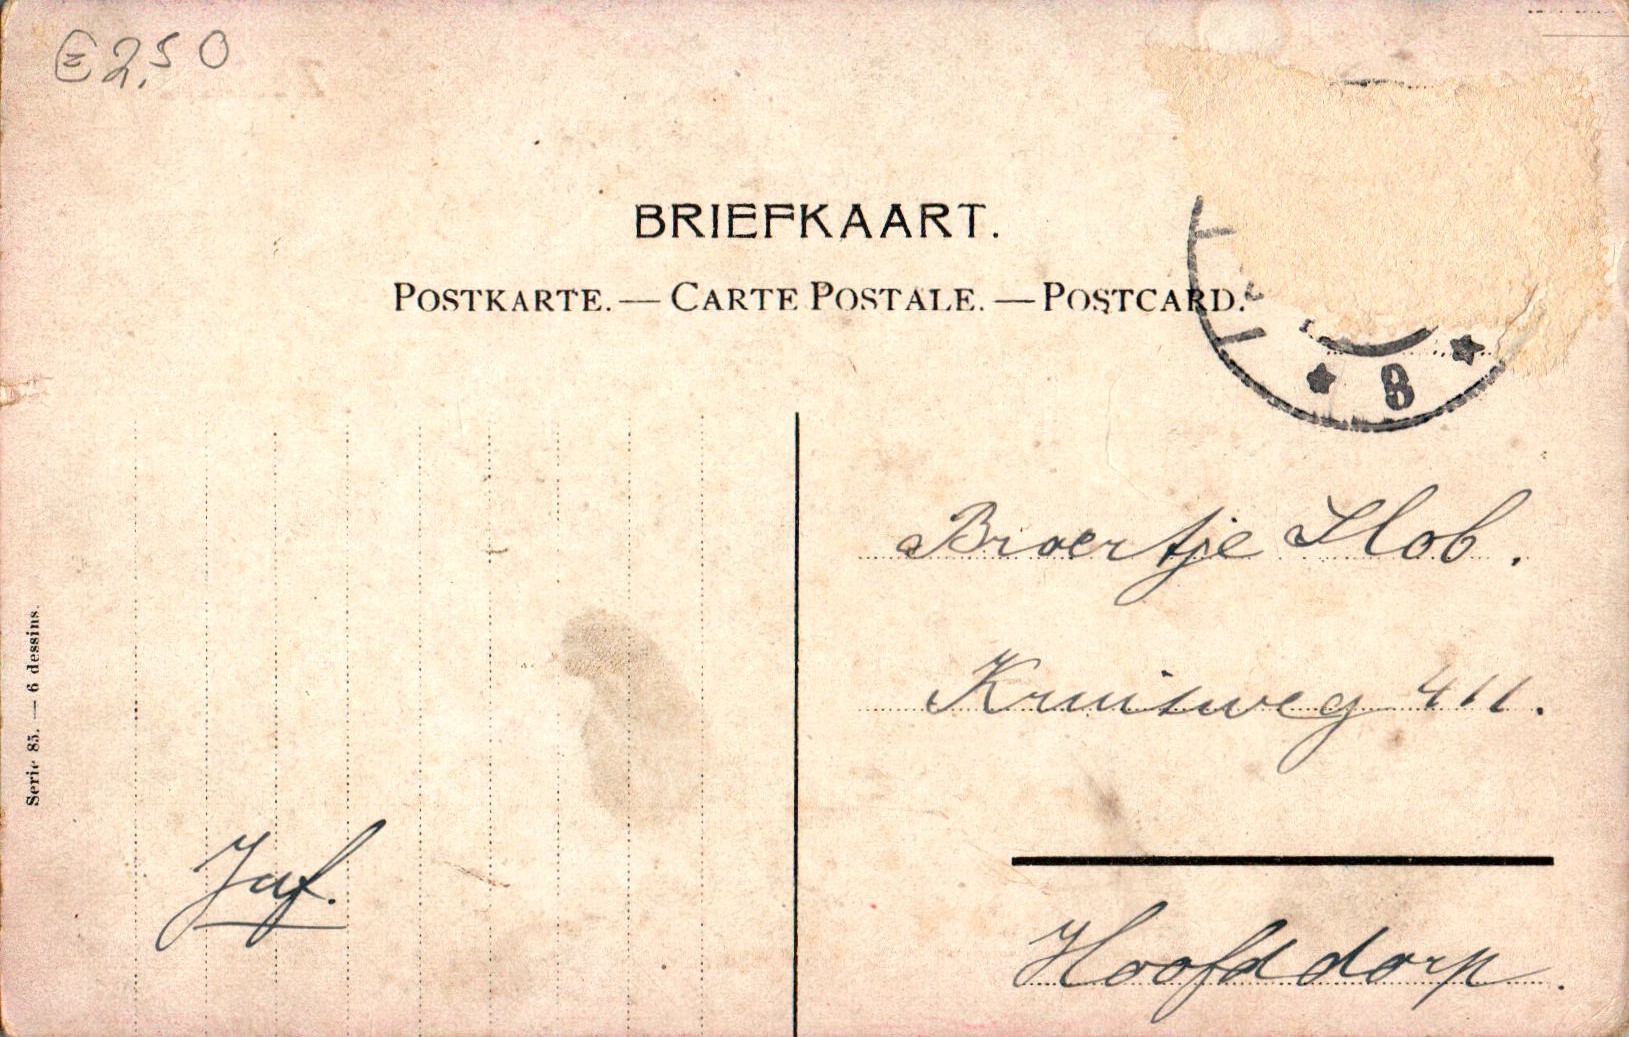 € 2,50
BRIEFKAART.
POSTKARTE. — CARTE POSTALE. — POSTCARD.
8
Broertje Slob.
Kruisweg 411.
Hoofddorp.
Juf.
Serie 85. — 6 dessins.